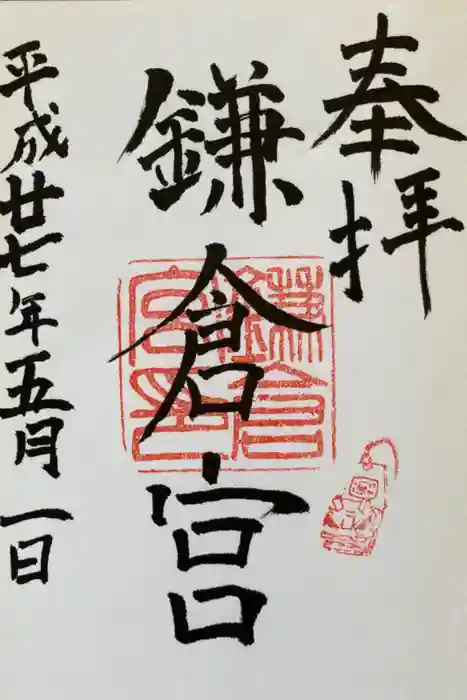 奉拝
鎌倉宮
平成廿七年五月一日
鎌倉宮印